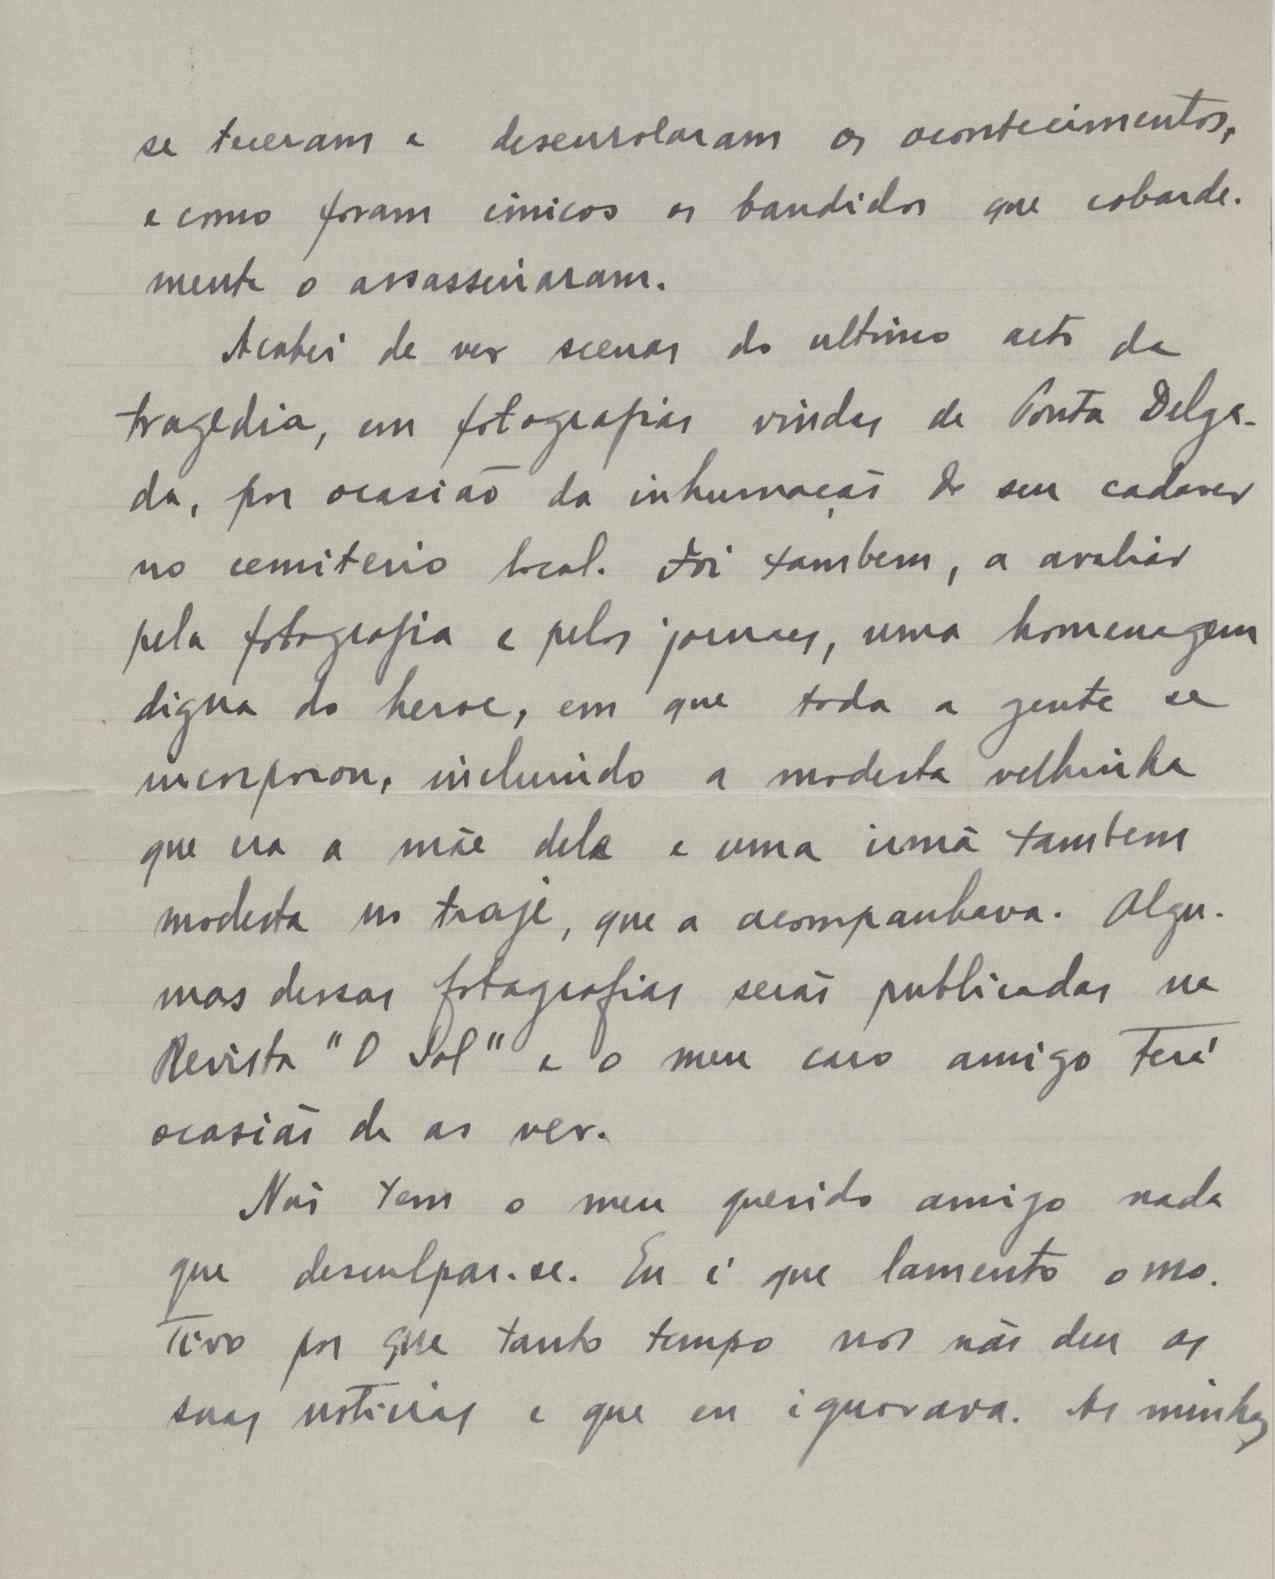 se teceram e desenrolaram os acontecimentos,
e como foram cinicos os bandidos que cobarde-
mente o assassinaram.
Acabei de ver scenas do ultimo acto da
tragedia, em fotografias vindas de Ponta Delga-
da, por ocasião da inhumação do seu cadaver
no cemiterio local. Foi tambem, a avaliar
pela fotografia e pelos jornaes, uma homenagem
digna do heroe, em que toda a gente se
incorporou, incluindo a modesta velhinha
que era a mãe dele e uma irmã tambem
modesta no traje, que a acompanhava. Algu-
mas dessas fotografias serão publicadas na
Revista "O Sol" e o meu caro amigo terá
ocasião de as ver.
Não tem o meu querido amigo nada
que desculpar-se. Eu é que lamento o mo-
tivo por que tanto tempo nos não deu as
suas noticias e que eu ignorava. As minhas